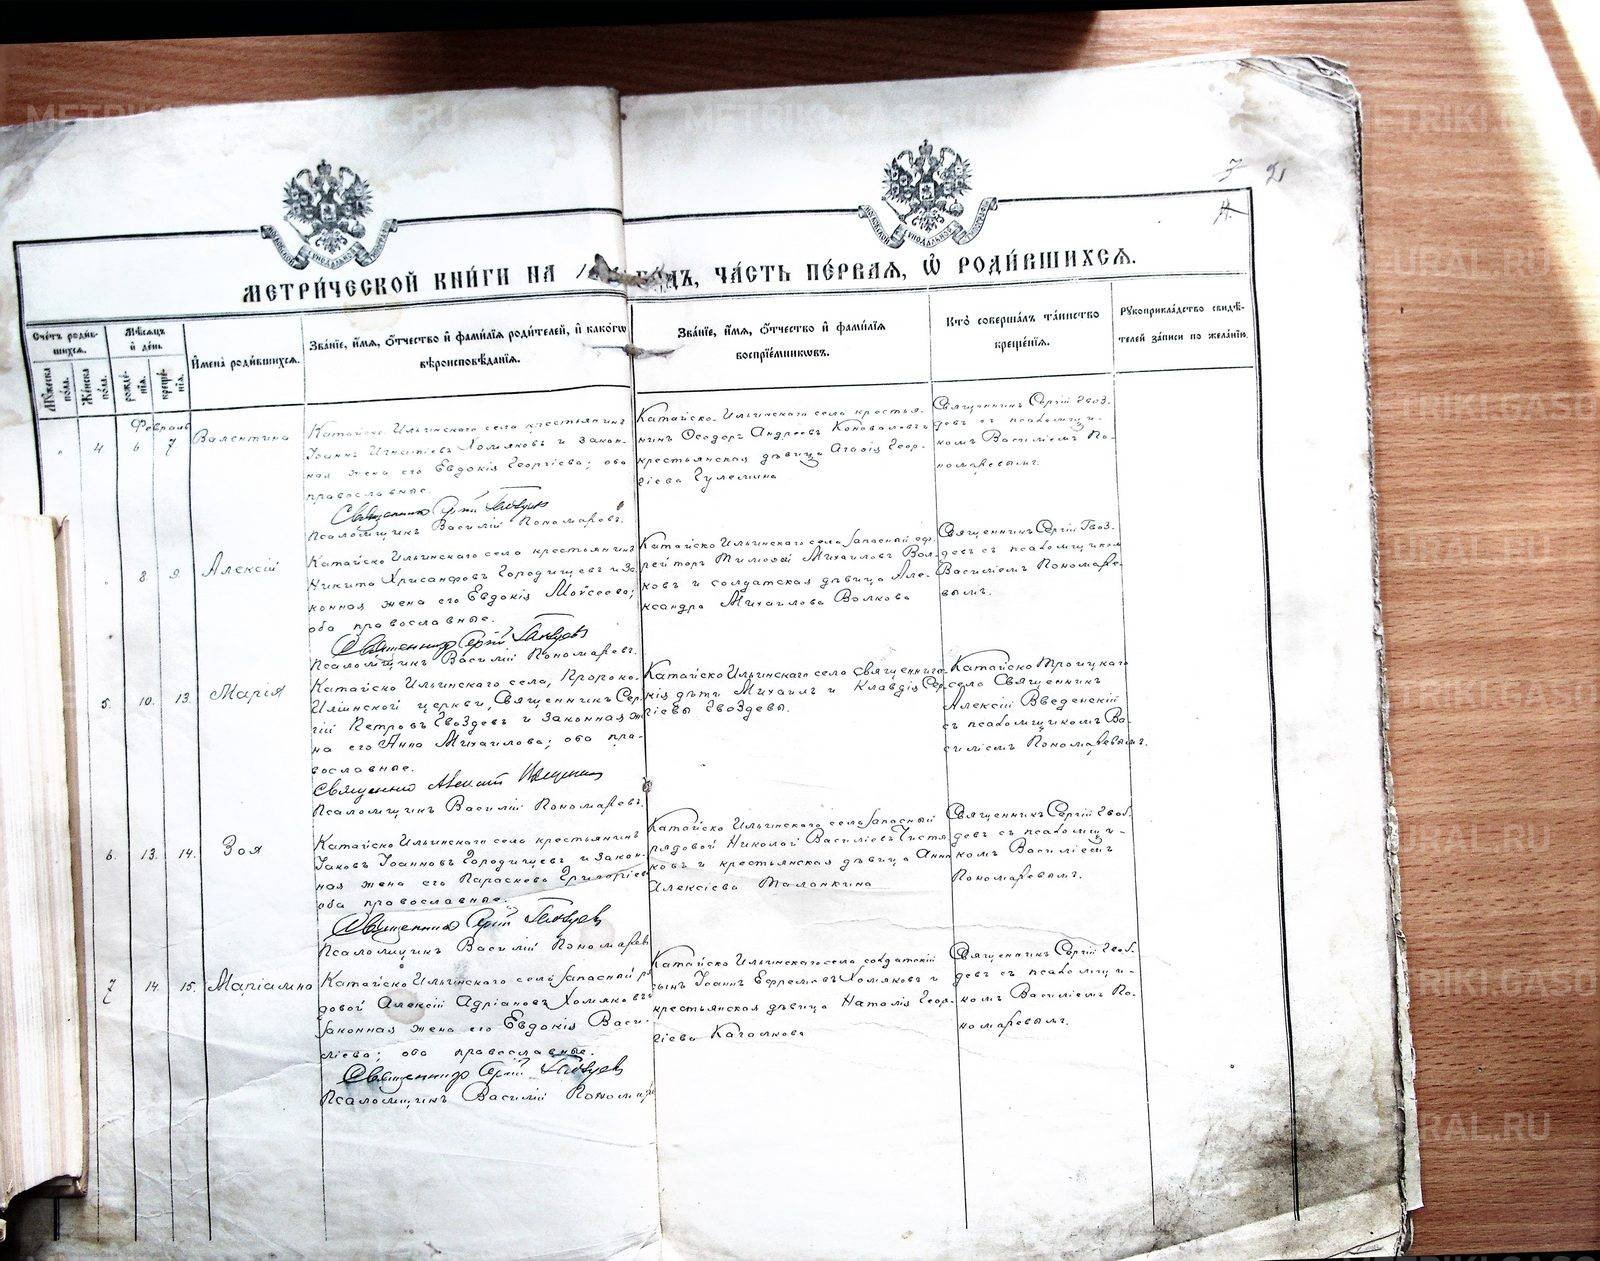 METRIKI.GASO
МЕТРИ́ЧЕСКОЙ КНИ́ГИ НА ГО́ДЪ, ЧА́СТЬ ПЕ́РВАЯ, Ѿ РОДИ́ВШИХСЯ.
Сче́тъ роди́в-
шихся.
Му́жеска по́ла.
Же́нска по́ла.
Мѣ́сяцъ и҆ де́нь.
рожде́нїя.
креще́нїя.
И҆мена̀ роди́вшихся.
Зва́нїе, и҆́мя, ѻ҆́тчество и҆ фами́лїя роди́телей, и҆ како́гѡ
вѣ́роисповѣ́данїя.
Зва́нїе, и҆́мя, ѻ҆́тчество и҆ фами́лїя
воспрїе́мниковъ.
Кто̀ соверша́лъ та́инство
креще́нїя.
Рꙋкоприкла́дство свидѣ́-
телей за́писи по жела́нїю.
Февраль
4 6 7 Валентина
Катайско Ильинскаго села крестьянинъ
Іоаннъ Игнатіевъ Хомяковъ и закон-
ная жена его Евдокія Георгіева; оба
православные.
Священникъ Сергій Гвоздевъ
Псаломщикъ Василій Пономаревъ.
Катайско-Ильинскаго села крестья-
нинъ Ѳеодоръ Андреевъ Коноваловъ
крестьянская дѣвица Агафія Геор-
гіева
Священникъ Сергій Гвоз-
девъ съ псаломщи-
комъ Василіемъ По-
номаревымъ.
8. 9. Алексій
Катайско Ильинскаго села крестьянинъ
Никита Хрисанфовъ Городищевъ и за-
конная жена его Евдокія Моѵсеева;
оба православные.
Священникъ Сергій Гвоздевъ
Псаломщикъ Василій Пономаревъ.
Катайско Ильинскаго села запасный еф-
рейторъ Тимоѳей Михаиловъ Вол-
ковъ и солдатская дѣвица Але-
ксандра Михаилова Волкова
Священникъ Сергій Гвоз-
девъ съ псаломщикомъ
Василіемъ Пономаре-
вымъ.
5. 10. 13. Марія
Катайско Ильинскаго села, Пророко-
Илiинской церкви, Священникъ Сер-
гій Петровъ Гвоздевъ и законная же-
на его Анна Михаилова; оба пра-
вославные.
Священникъ Алексій Введенскій
Псаломщикъ Василій Пономаревъ.
Катайско Ильинскаго села Священниче-
кія дѣти Михаилъ и Клавдія Сер-
гіевы Гвоздевы.
Катайско Троицкаго
села Священникъ
Алексій Введенскій
съ псаломщикомъ Ва-
силіемъ Пономаревымъ.
6. 13. 14. Зоя
Катайско Ильинскаго села крестьянинъ
Іаковъ Іоанновъ Городищевъ и закон-
ная жена его Параскева Григоріева
оба православные.
Священникъ Сергій Гвоздевъ
Псаломщикъ Василій Пономаревъ
Катайско Ильинскаго села запасный
рядовой Николай Василіевъ Чистя-
ковъ и крестьянская дѣвица Анна
Алексіева Маланкина
Священникъ Сергій Гвоз-
девъ съ псаломщи-
комъ Василіемъ
Пономаревымъ.
7 14. 15. Маріамна
Катайско Ильинскаго села запасный ря-
довой Алексій Адріановъ Хомяковъ
законная жена его Евдокія Васи-
ліева; оба православные.
Священникъ Сергій Гвоздевъ
Псаломщикъ Василій Пономаревъ
Катайско Ильинскаго села солдатскій
сынъ Іоаннъ Ефремовъ Хомяковъ и
крестьянская дѣвица Наталія Геор-
гіева Качалкова
Священникъ Сергій Гвоз-
девъ съ псаломщи-
комъ Василіемъ По-
номаревымъ.